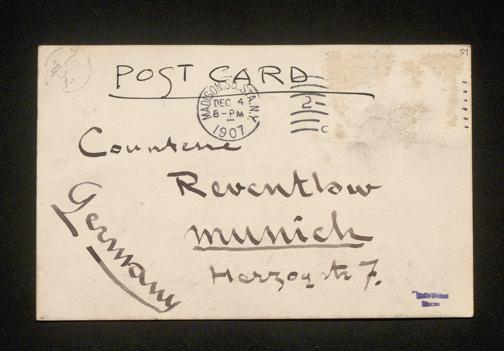 POST CARD
MADISON SQ. STA. N.Y.
DEC 4
8-PM
1907
2
C
Reventlow
Munich
Herzog str 7.
Germany